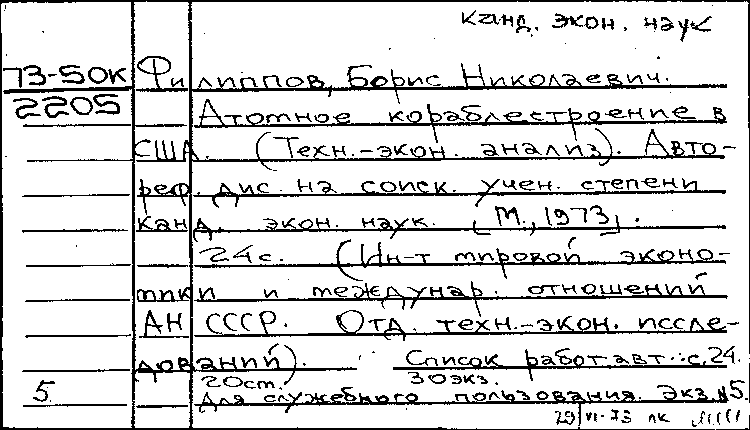 канд. экон. наук
73-50К Филиппов, Борис Николаевич.
2205 Атомное кораблестроение в
США. (Техн.-экон. анализ). Авто-
реф. дис. на соиск. учен. степени
канд. экон. наук. [М., 1973].
24 с. (Ин-т мировой эконо-
мики и междунар. отношений
АН СССР. Отд. техн.-экон. иссле-
дований). Список работ авт.: с. 24.
20 ст. 30 экз.
5 Для служебного пользования. Экз. № 5.
29 VI-73 пк